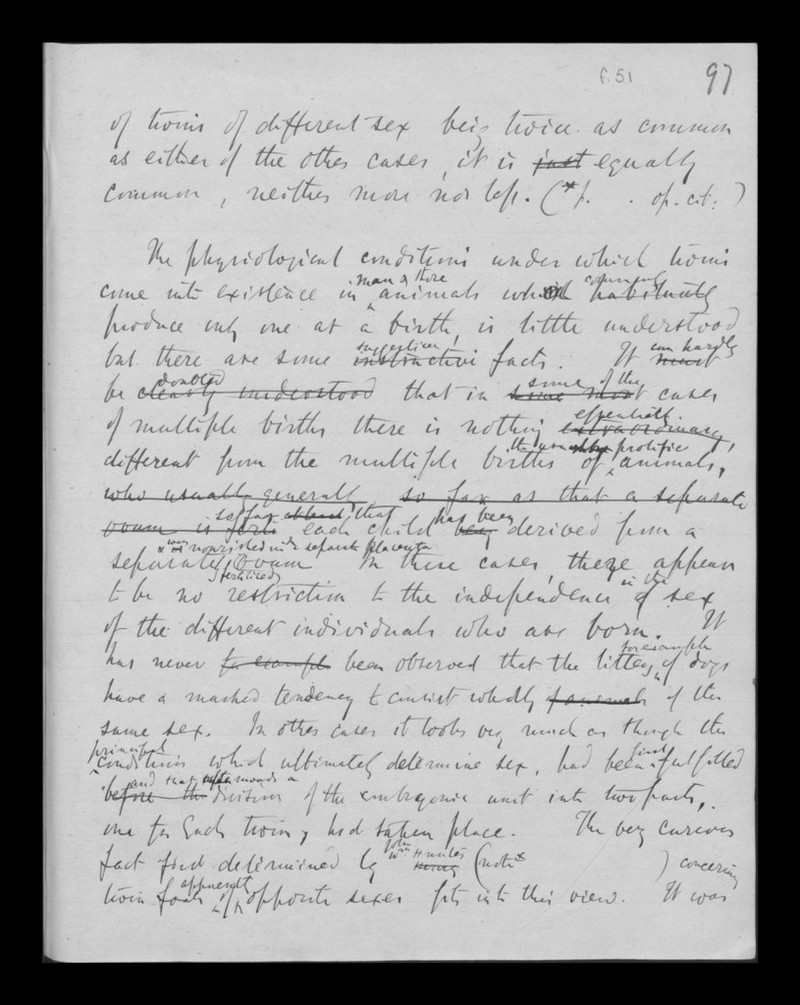 f. 51
97
of twins of different sex being twice as common
as either of the other cases, it is just equally
common, neither more nor less. (* p. . op. cit: )
The physiological conditions under which twins
man & those
commonly
come into existence in animals which habitually
produce only one at a birth, is little understood
suggestive
can hardly
but there are some instructive facts. It must
doubted
some of the
be clearly understood that in some most cases
essentially
of multiple births there is nothing extraordinary,
prolific
different from the multiple births of animals,
who usually generally so far as that a separate
so far that
has been
ovum is each child being derived from a
& was nourished in a separate placenta
separate ovum In these cases, there appears
fertilized
in the
to be no restriction to the independence of sex
of the different individuals who are born. It
for example
has never for example been observed that the litters of dogs
have a marked tendency to consist wholly of the
same sex. In other cases it looks very much as though the
principal
first
conditions which ultimately determine sex, had been fulfilled
and that afterwards a
before the division of the embryonic unit into two parts,
one for each twin, had taken place. The very curious
John
fact first determined by Hunter (note* ) concerning
apparently
twin foals of opposite sexes fits into this view. It was